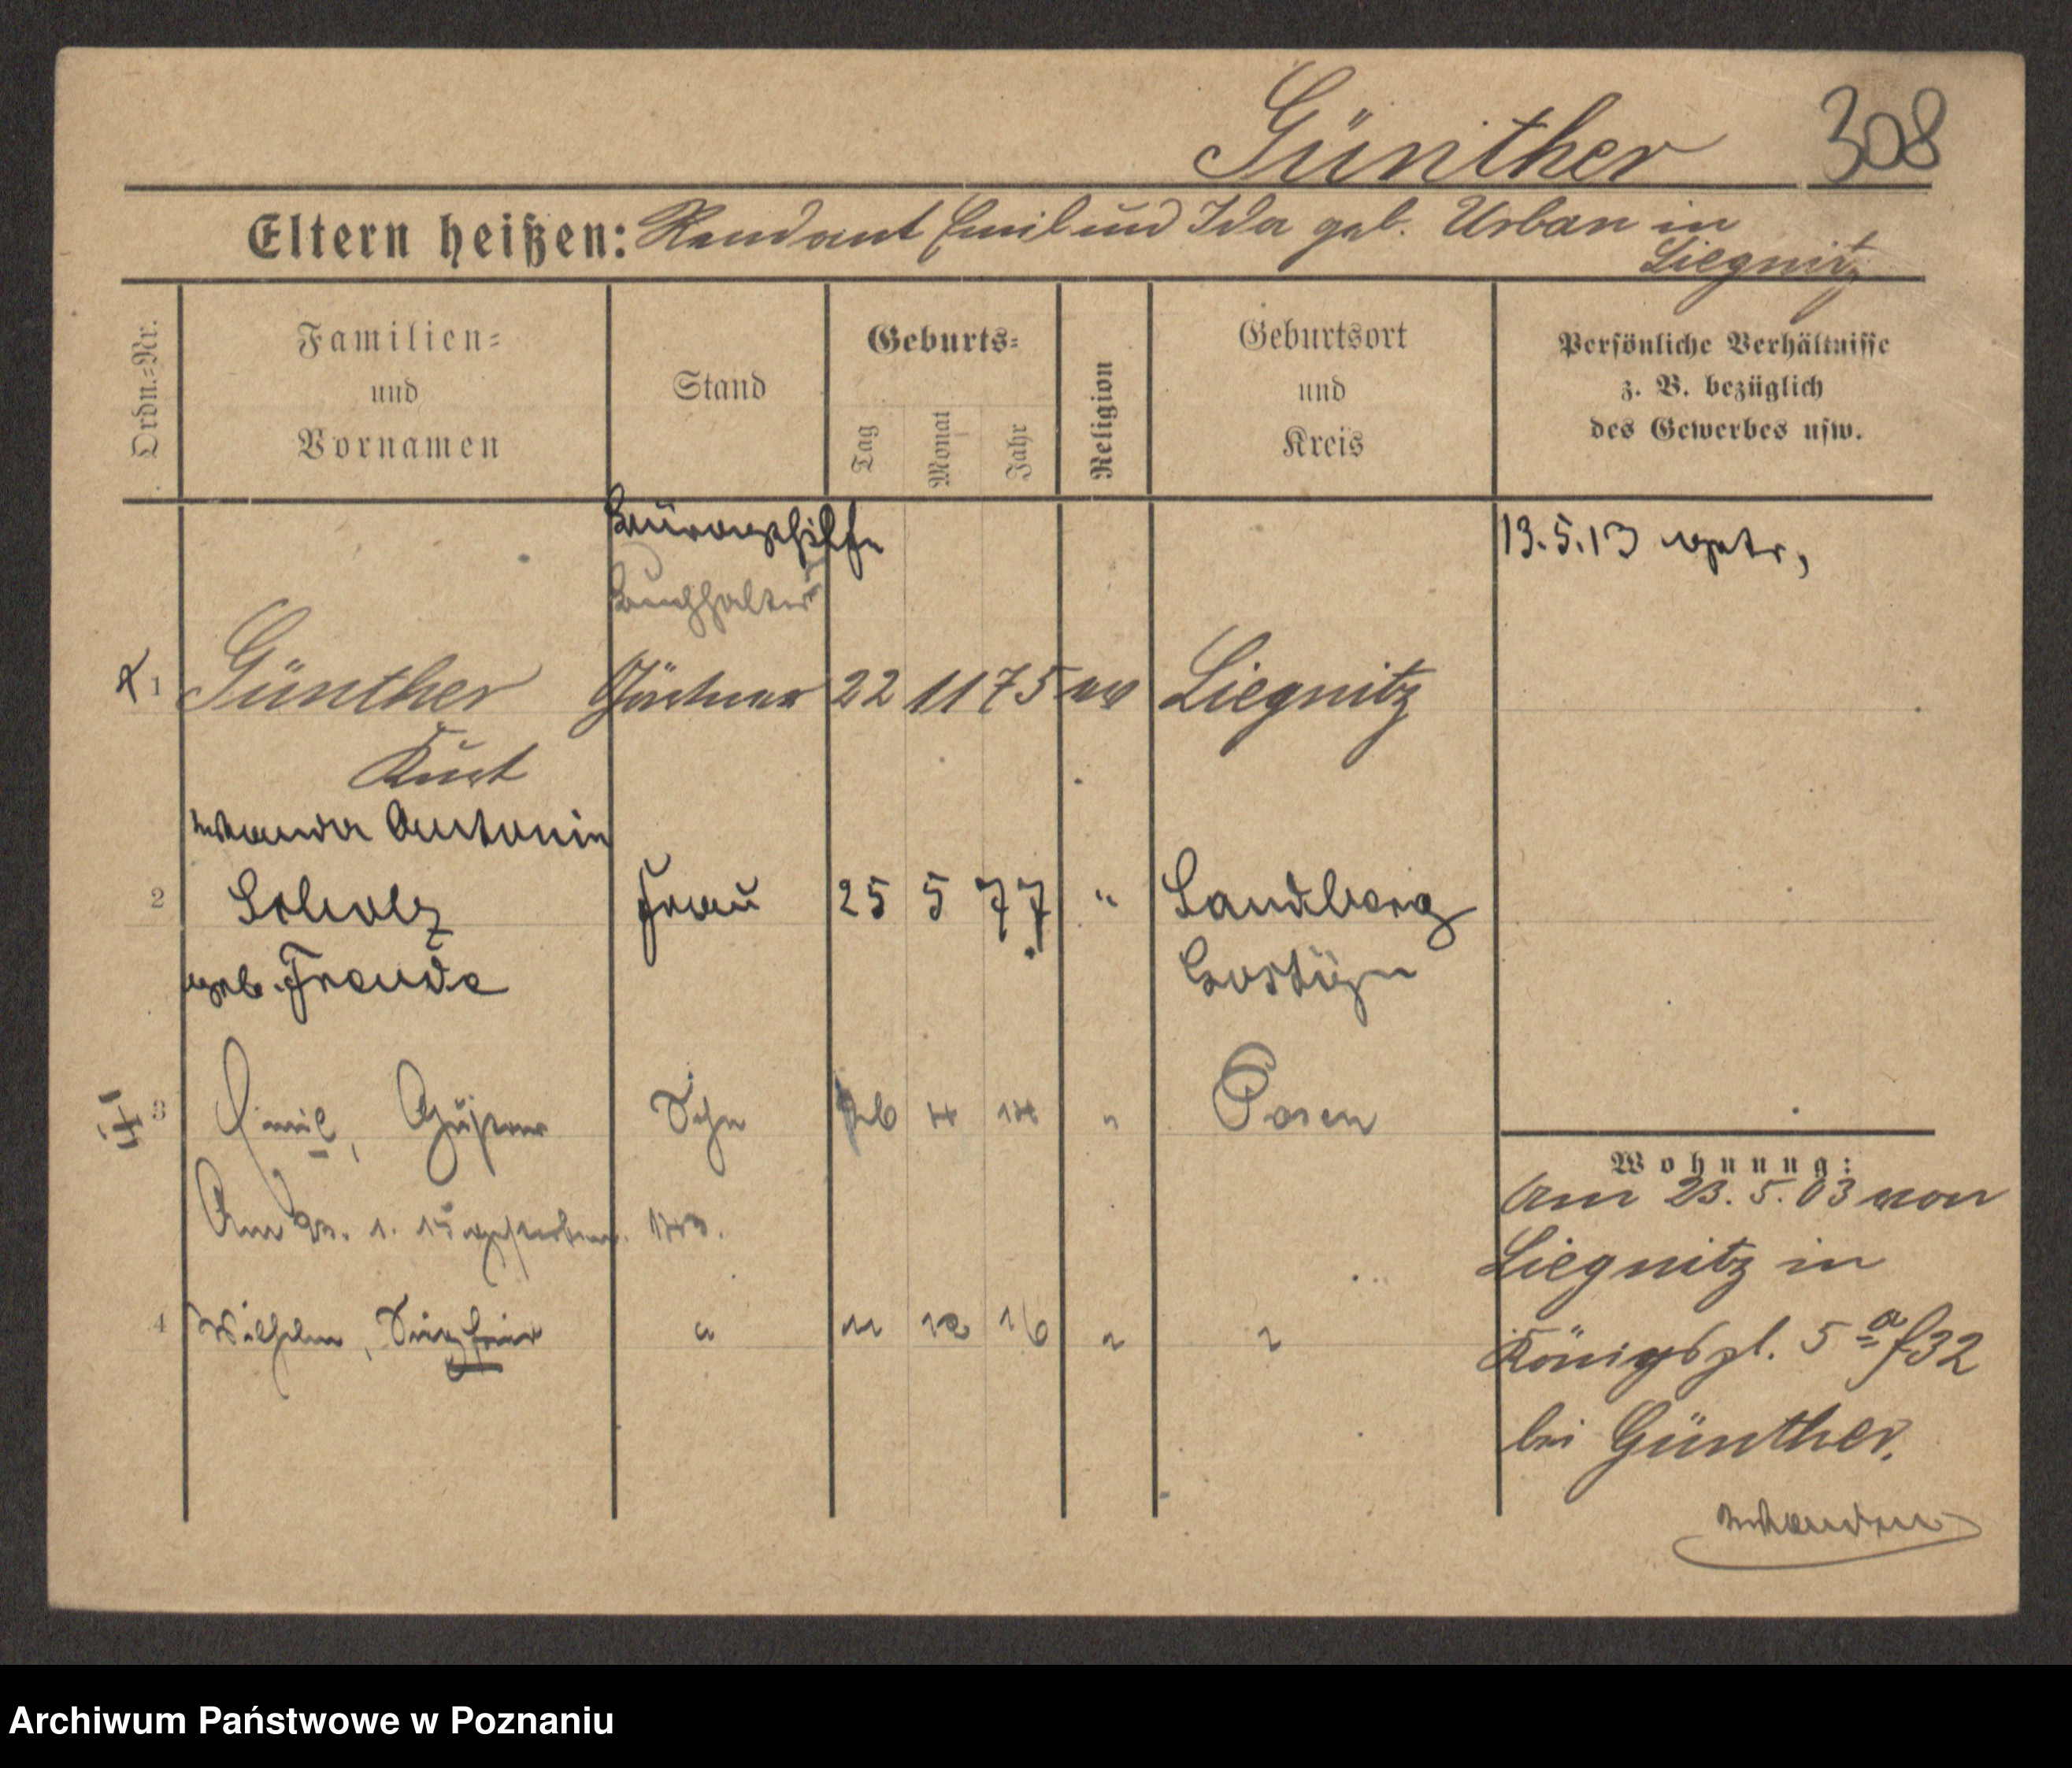 Günther 308
Eltern heißen: Rendant Emil und Ida geb. Urban in
Liegnitz
Ordn.=Nr.
Familien=
und
Vornamen
Stand
Geburts=
Tag
Monat
Jahr
Religion
Geburtsort
und
Kreis
Persönliche Verhältnisse
z. B. bezüglich
des Gewerbes usw.
Bürogehilfe
13.5.13
Buchhalter
1 Günther Gärtner 22 11 75 ev Liegnitz
Kurt
Wanda Antonin
2 Scholz Frau 25 5 77 " Sandberg
geb. Freude Gostyn
3 Emil, Gustav Sohn 26 4 14 " Posen
Am 1. 15 gestorben.
4 Wilhelm, Siegfried " 11 12 16 " "
Wohnung:
Am 23. 5. 03 von
Liegnitz in
Königspl. 5 a f32
bei Günther.
Archiwum Państwowe w Poznaniu